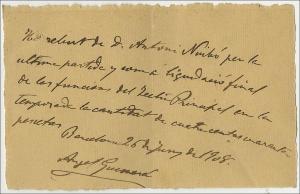 He rebut de D. Antoni Niubó per la
ultima partida y com a liquidació final
de las funcions del Teatro Principal en la
temporada la cantitat de cuatrecentas cuaranta
pesetas
Barcelona 26 de juny de 1908.
Angel Guimerà